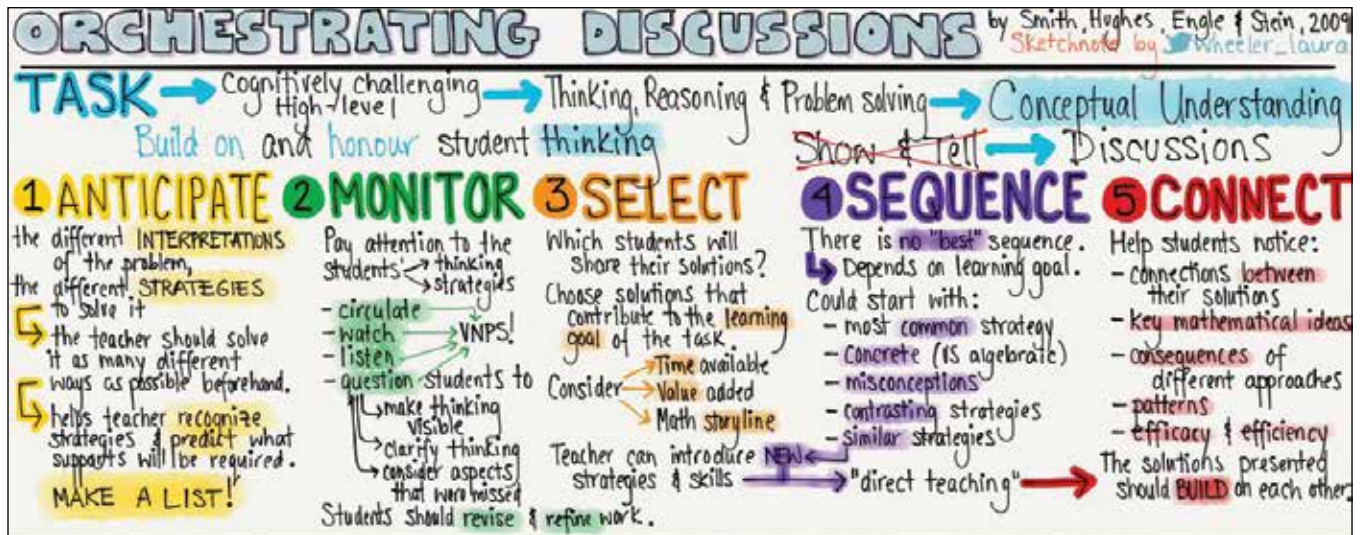 ORCHESTRATING DISCUSSIONS
by Smith, Hughes, Engle & Stein, 2009
Sketchnote by wheeler_laura
TASK → Cognitively challenging
High-level → Thinking, Reasoning & Problem solving → Conceptual Understanding
Build on and honour student thinking
Show & Tell → Discussions
1 ANTICIPATE
the different INTERPRETATIONS
of the problem,
the different STRATEGIES
to solve it
the teacher should solve
it as many different
ways as possible beforehand.
helps teacher recognize
strategies & predict what
supports will be required.
MAKE A LIST!
2 MONITOR
Pay attention to the
students' → thinking
→ strategies
- circulate
- watch → VNPS!
- listen
- question students to
make thinking
visible
clarify thinking
consider aspects
that were missed
Students should revise & refine work.
3 SELECT
Which students will
share their solutions?
Choose solutions that
contribute to the learning
goal of the task
Consider → Time available
→ Value added
→ Math storyline
Teacher can introduce NEW
strategies & skills → "direct teaching" →
4 SEQUENCE
There is no "best" sequence.
Depends on learning goal.
Could start with:
- most common strategy
- concrete (vs algebraic)
- misconceptions
- contrasting strategies
- similar strategies
5 CONNECT
Help students notice:
- connections between
their solutions
- key mathematical ideas
- consequences of
different approaches
- patterns
- efficacy & efficiency
The solutions presented
should BUILD on each other.